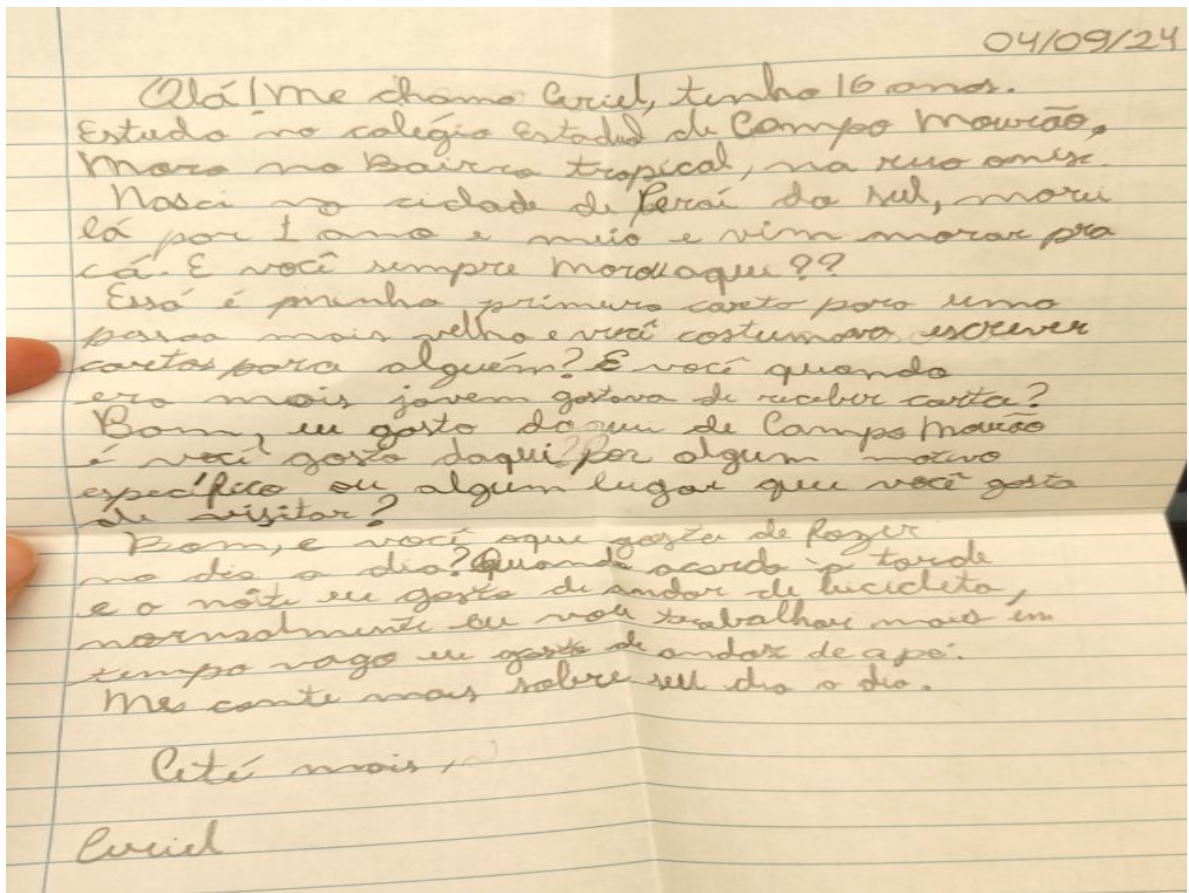 04/09/24
Olá! Me chamo Auriel, tenho 16 anos.
Estudo no colégio Estadual de Campo Mourão,
Moro no Bairro tropical, na rua
Nasci na cidade de Piraí do sul, morei
lá por 1 ano e meio e vim morar pra
cá. E você sempre morou aqui??
Essá é minha primeira carta para uma
pessoa mais velha e você costumava escrever
cartas para alguém? E você quando
era mais jovem gostava de receber carta?
Bom, eu gosto daqui de Campo Mourão
é você gosta daqui? Por algum motivo
específico ou algum lugar que você gosta
de visitar?
Bom, e você oque gosta de fazer
no dia a dia? Quando acordo a tarde
e a noite eu gosto de andar de bicicleta,
normalmente eu vou trabalhar mais em
tempo vago eu gosto de andar de a pé.
Me conte mais sobre seu dia a dia.
Até mais,
Auriel